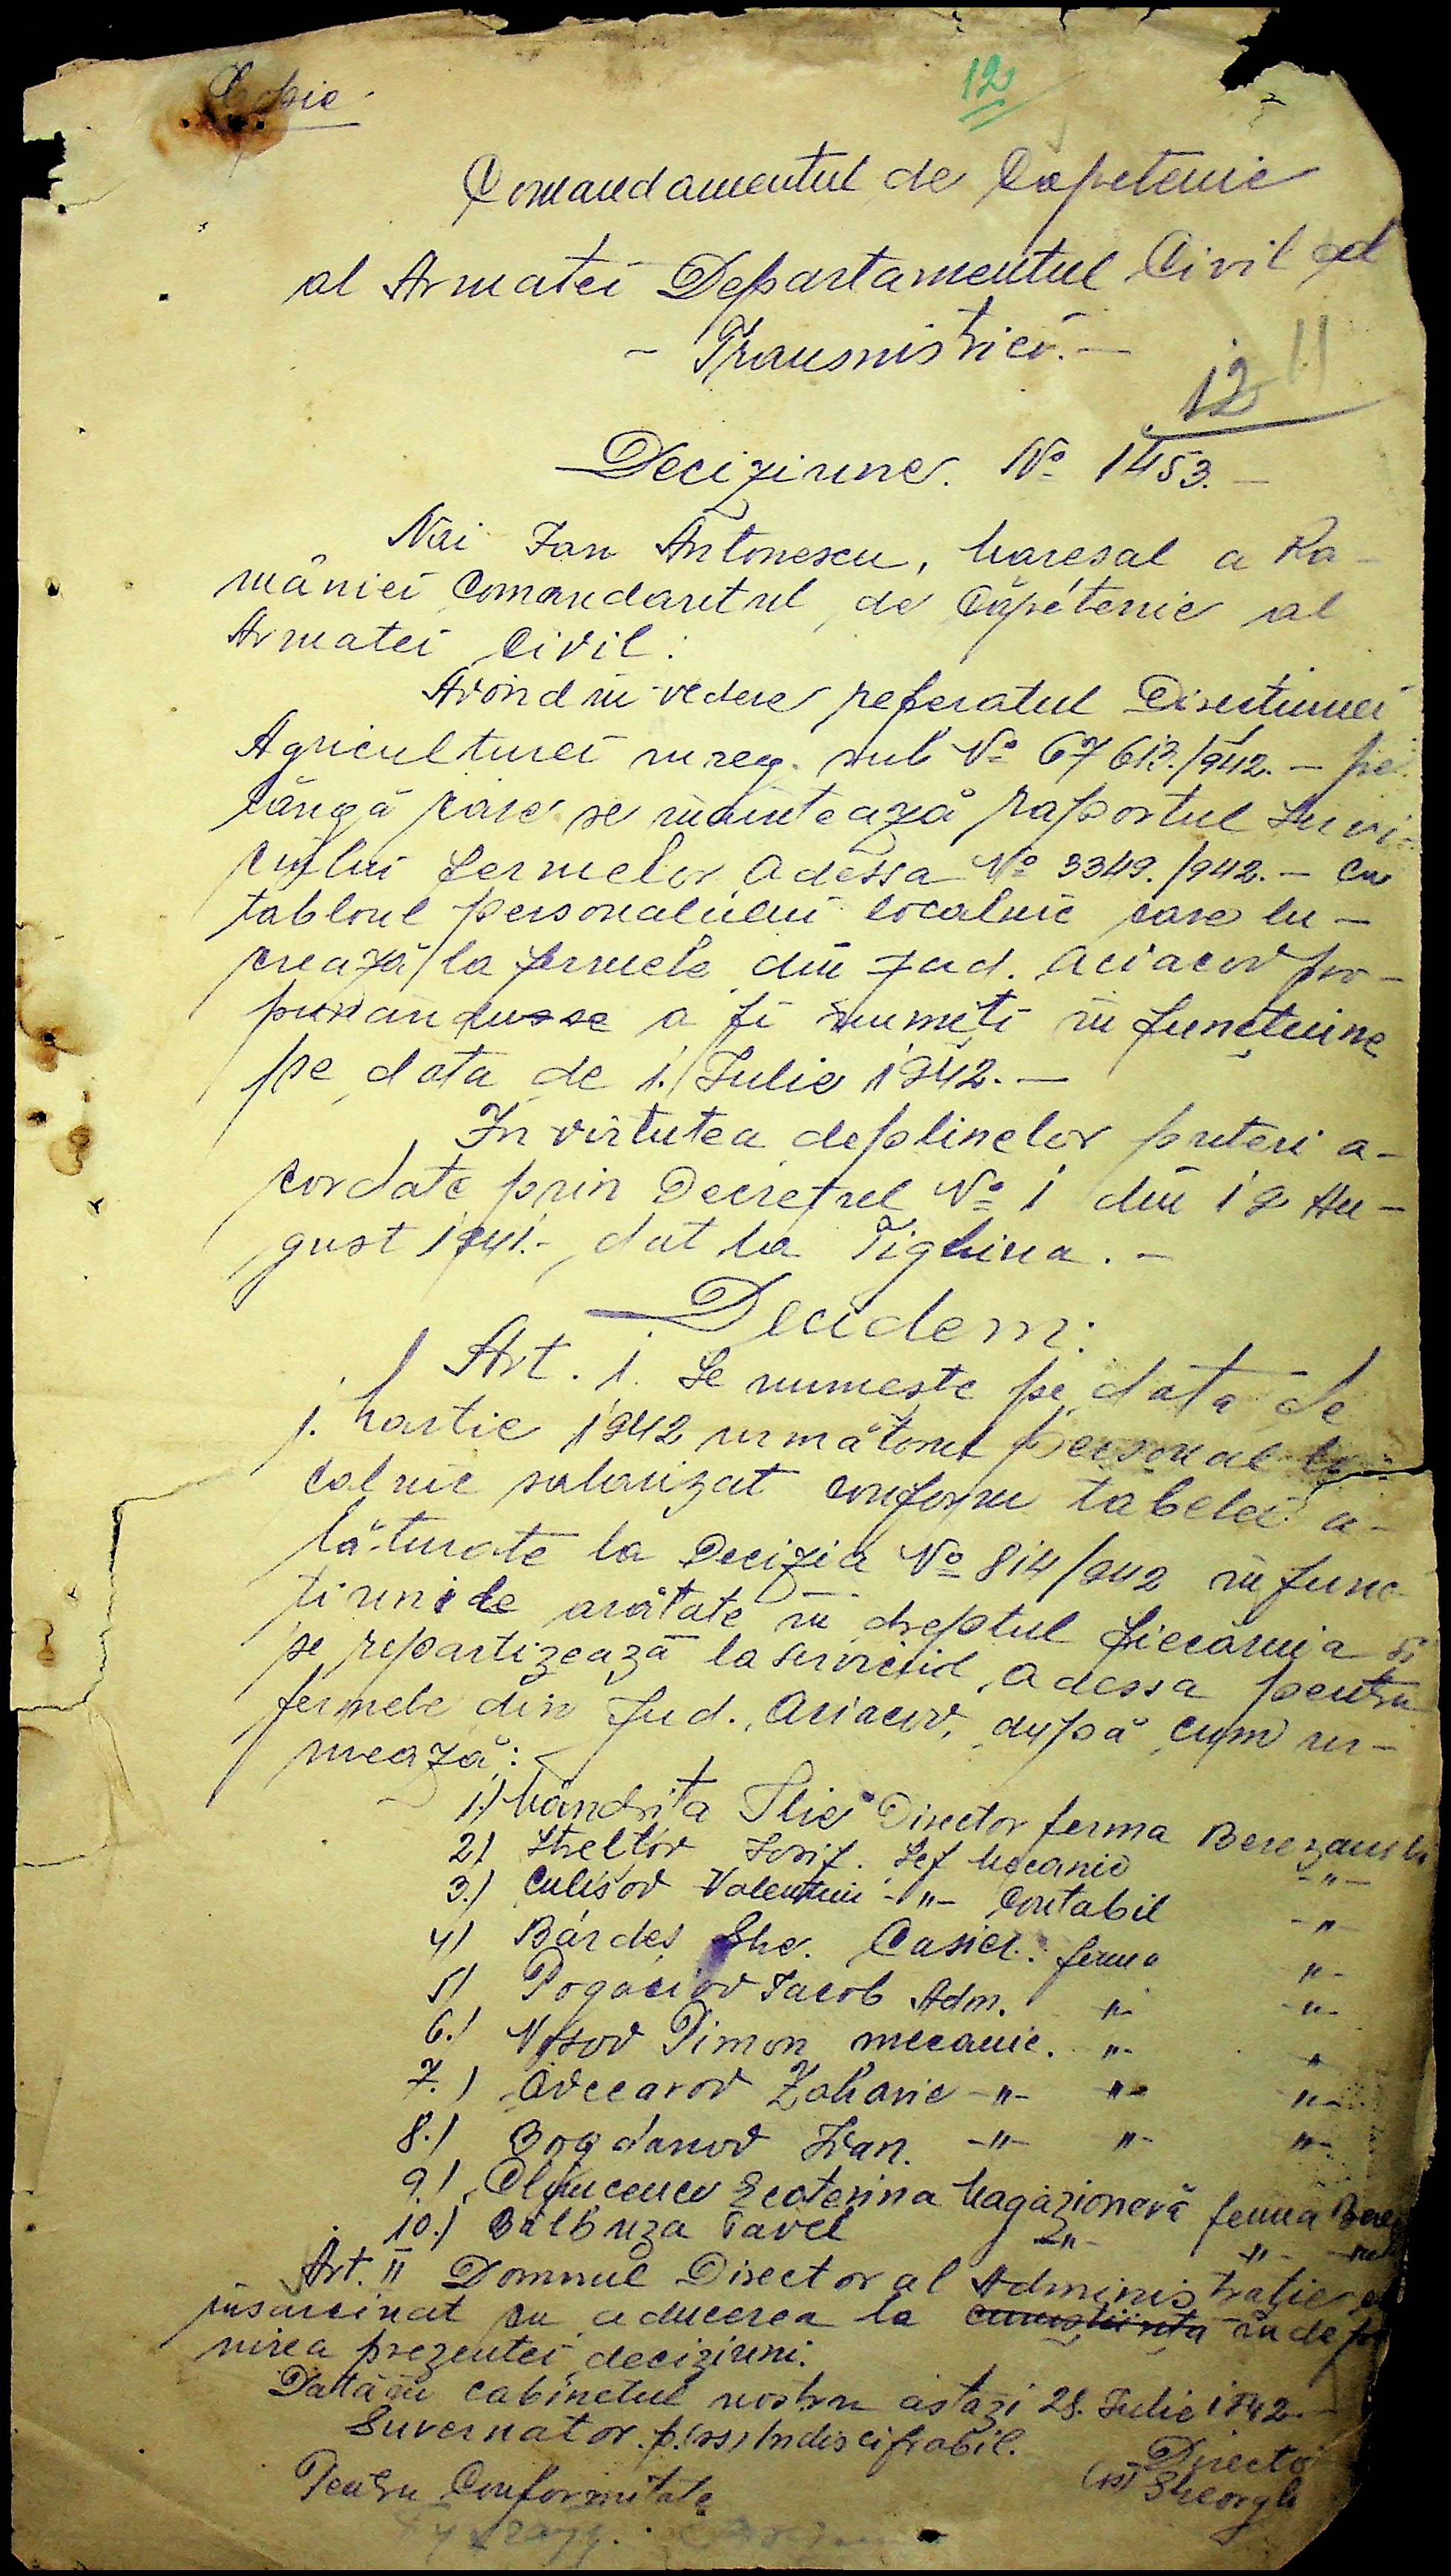 Copie
12
Comandamentul de Capetenie
al Armatei Departamentul Civil al
- Transnistriei. -
11
12
Deciziune. No 1453. -
Noi Ion Antonescu, Mareșal a Ro-
mâniei Comandantul de Căpetenie al
Armatei Civil:
Având in vedere referatul Direcțiunei
Agriculturei inreg. sub No 67613./942. - pe
lângă care se inaintează raportul Servi-
ciului Fermelor Odessa No 3349./942. - cu
tabloul personalului localnic care lu-
crează la fermele din Jud. Oceacov pro-
punandusse a fi numiți in funcțiune
pe data de 1. Iulie 1942. -
In virtutea deplinelor puteri a-
cordate prin Decretul No 1 din 19 Au-
gust 1941. - dat la Tighina. -
Decidem:
Art. 1. Se numește pe data de
1. Martie 1942 următorul personal lo-
calnic salarizat conform tabelei a-
lăturate la Decizia No 814/942 in func
tiunile arătate in dreptul fiecăruia si
se repartizează la serviciul Odessa pentru
fermele din Jud. Oceacov, după cum ur-
mează:
1.) Mândrița Ilie Director ferma Berezanski
2) Streltov Iosif. Șef Mecanic -"-
3.) Culisov Valentin -"- Contabil -"-
4) Bardeș Ghe. Casier. ferma "-
5) Pogaciov Iacob Adm. "- -"-
6.) Nosov Timon mecanic. "- "
7.) Ovcearov Zaharie -"- "- "-
8.) Bogdanov Ivan. -"- "- "-
9.) Ecaterina Magazioneră ferma Berez
10.) Balbuza Pavel -"- -"-
Art. II Domnul Director al Administratiei e
insarcinat cu aducerea la cunostiinta indepli
nirea prezentei deciziuni.
Dată in cabinetul nostru astazi 28. Iulie 1942. -
Guvernator. p. (ss) Indiscifrabil.
Directo
(ss) Gheorgh
Pentru Conformitate